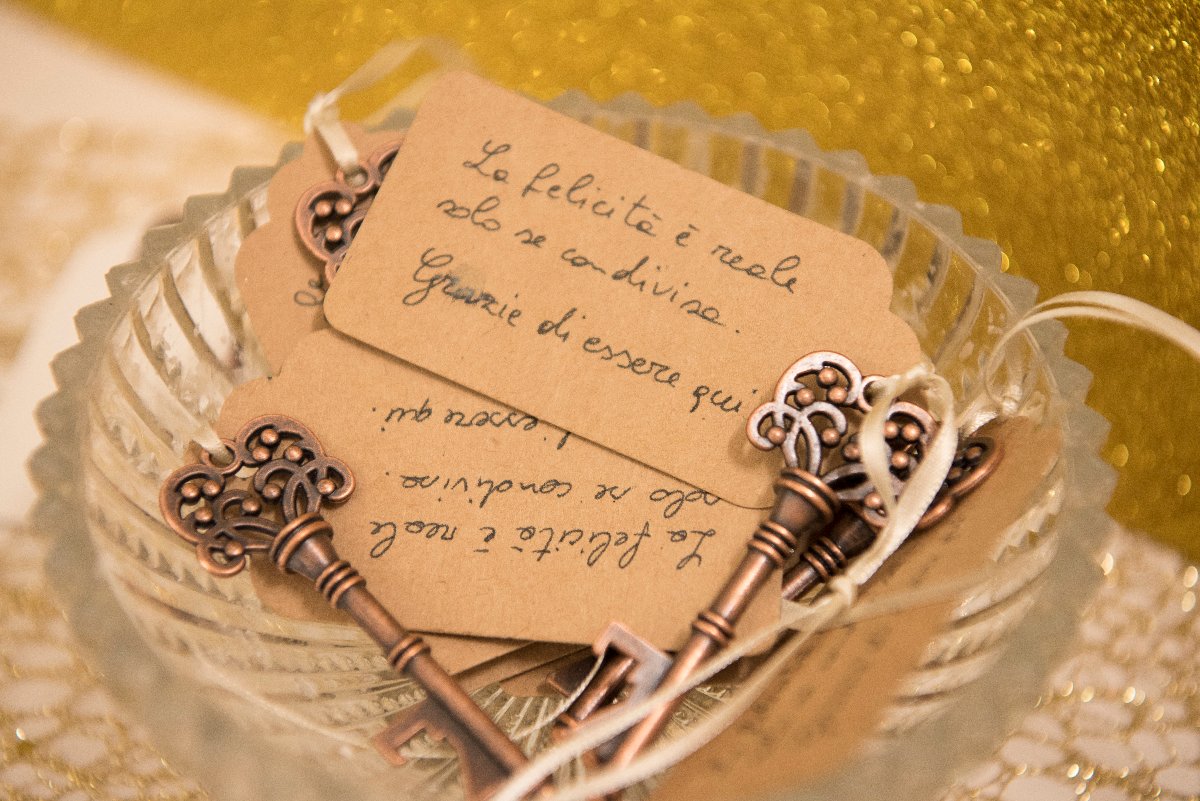 La felicità è reale
solo se condivisa.
Grazie di essere qui
La felicità è reale
solo se condivisa.
di essere qui.